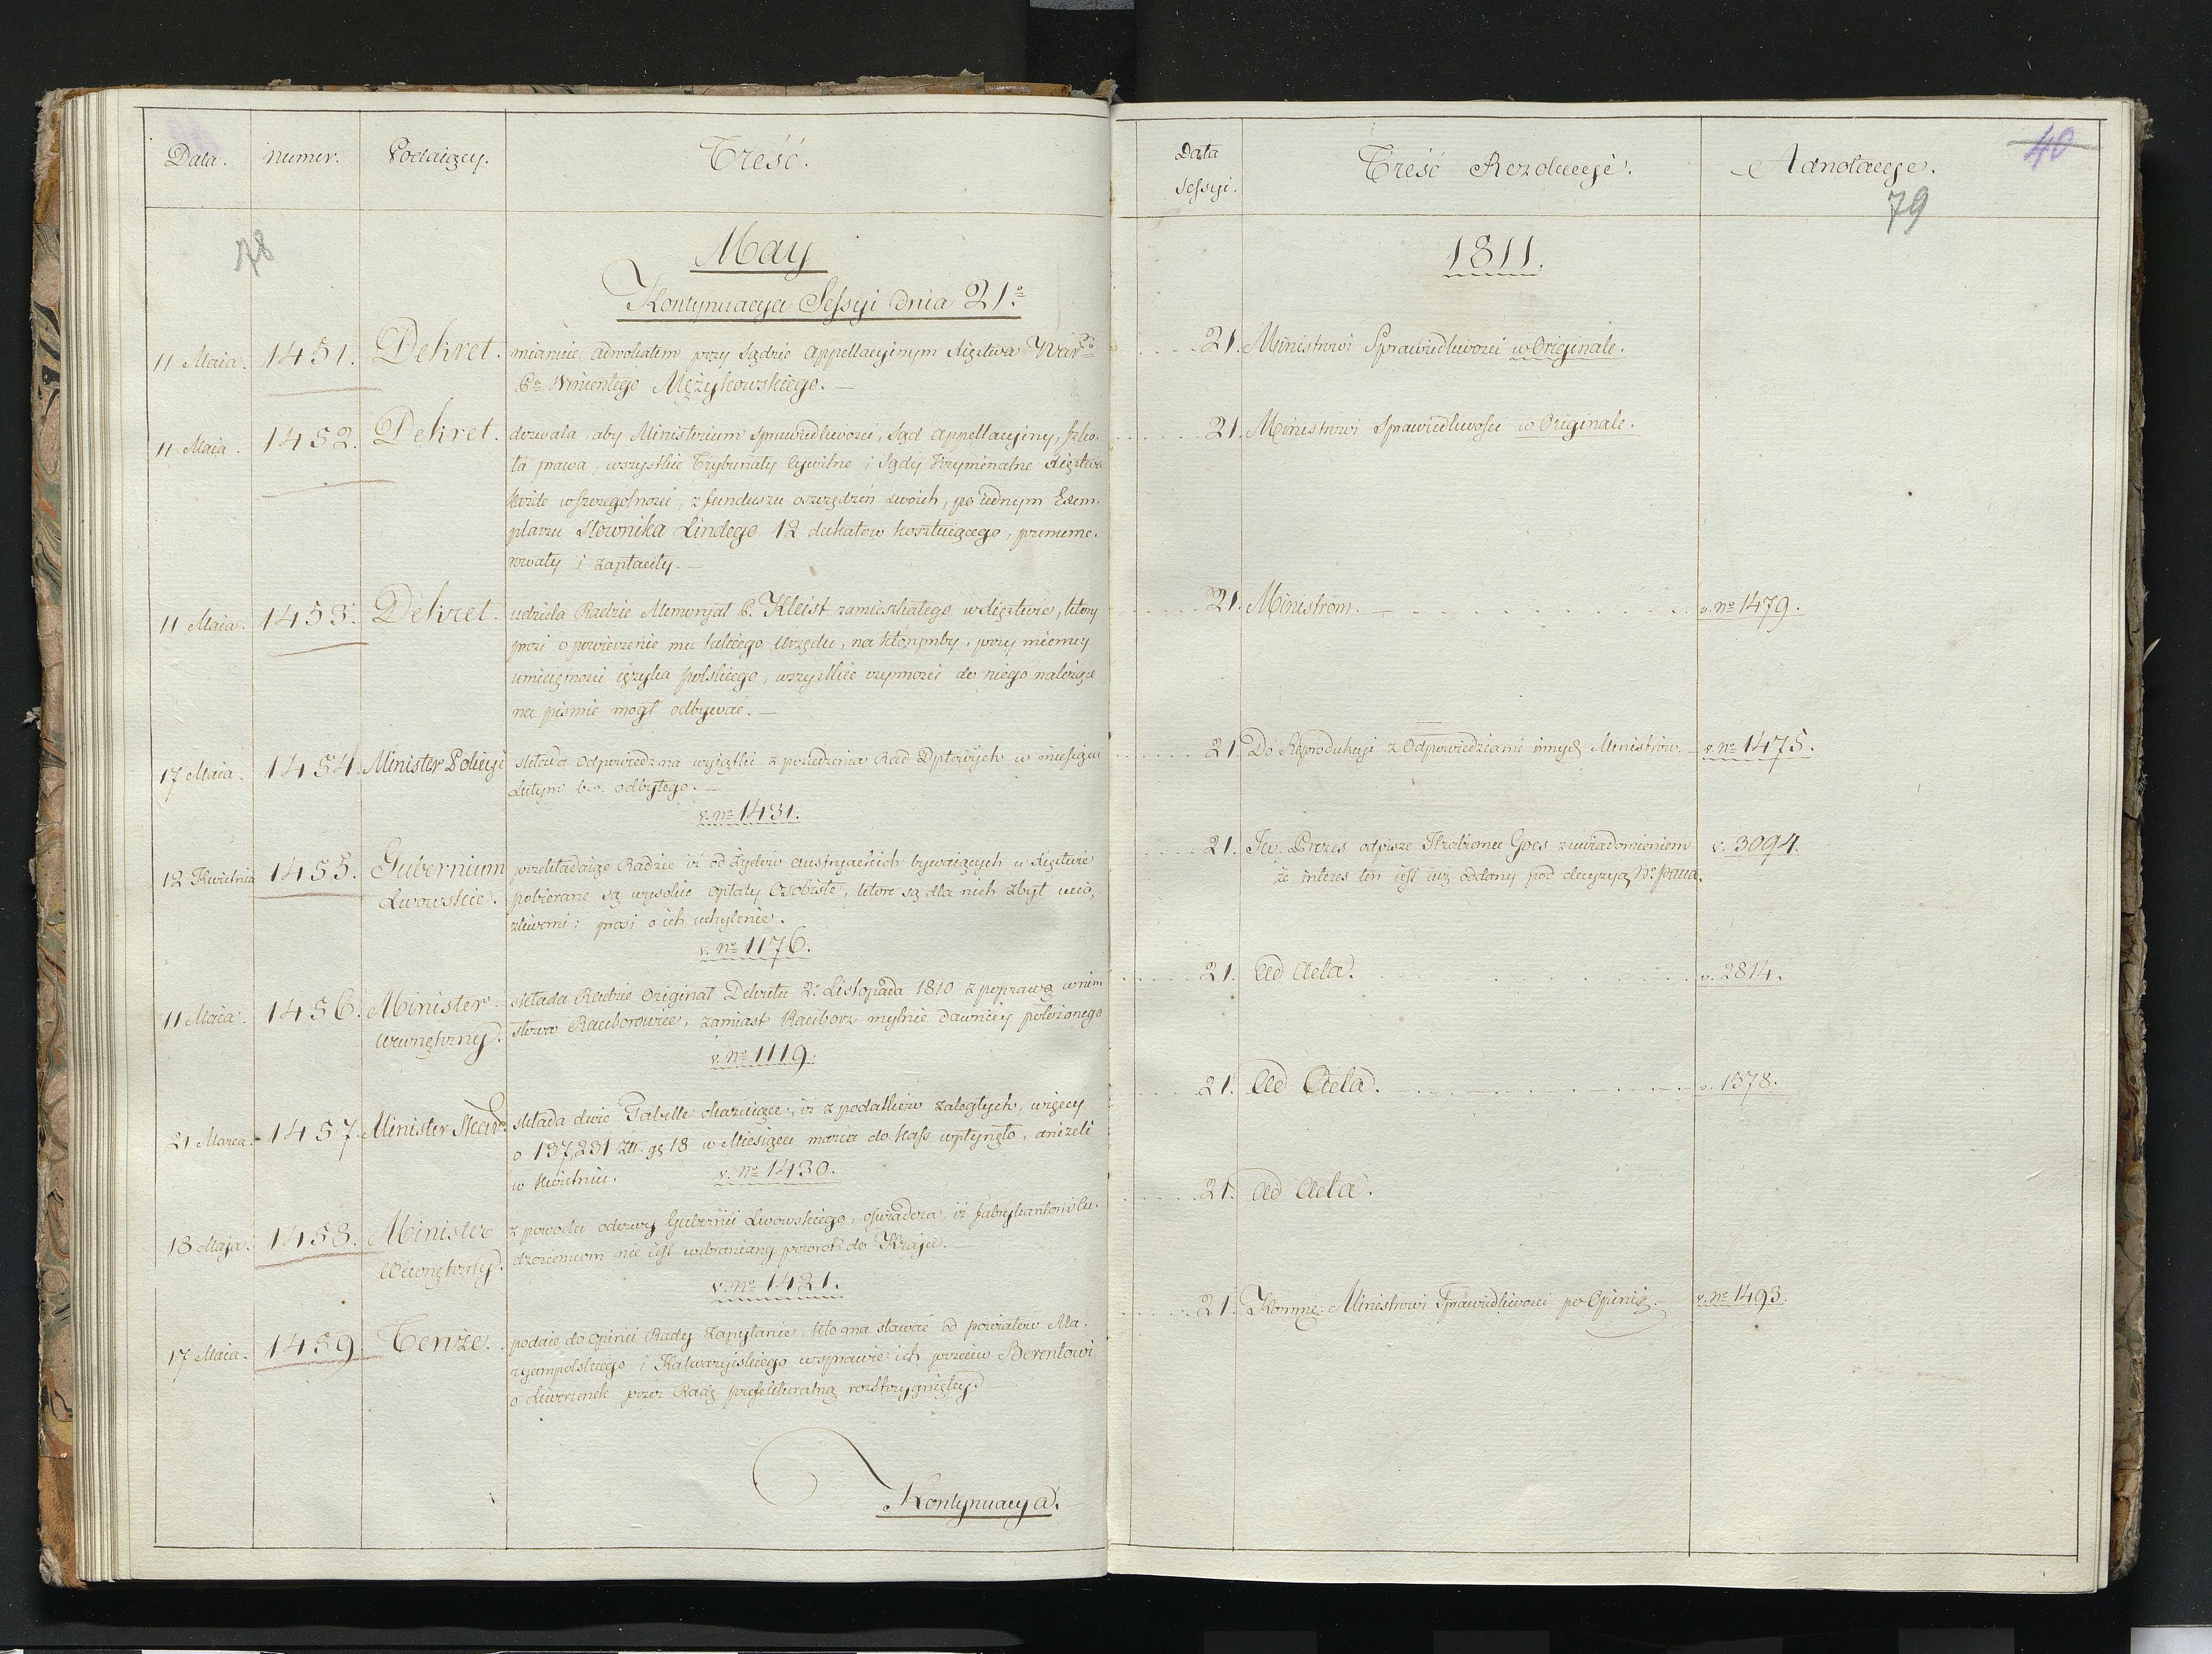 Data. numer. Podaiący. Treść.
78
May
Kontynuacya Sessyi dnia 21.º
11 Maia. 1451. Dekret. mianuie adwokatem przy Sądzie Appellacyinym Xięztwa War.
P. Wincentego Mężykowskiego. —
11 Maia. 1452. Dekret. dozwala, aby Ministerium Sprawiedliwości, Sąd Appellacyiny, Szko-
ła prawa, wszystkie Trybunały Cywilne i Sądy Kryminalne Xięztwa
każde wszczególności, z funduszu oszczędzeń swoich, po iednym Exem-
plarzu Słownika Lindego 12 dukatów kosztuiącego, prenume-
rowały i zapłaciły. —
11 Maia. 1453. Dekret. udziela Radzie Memoryał P. Kleist zamieszkałego w Xięztwie, który
prosi o powierzenie mu takiego Urzędu, na którymby, przy
umieiętności ięzyka polskiego, wszystkie czynności do niego należące
na pismie mogł odbywac. —
17 Maia. 1454. Minister Policyi składa Odpowiedz na wyiątki z posiedzenia Rad Dptowych w miesiącu
Lutym b.r. odbytego. —
v. nº 1431.
12 Kwietnia 1455. Gubernium przekładaiąc Radzie iż od Żydów austryackich bywaiących w Xięztwie
Lwowskie. pobierane są wysokie opłaty Osobiste, które są dla nich zbyt ucią-
żliwemi; prosi o ich uchylenie.
v. nº 1176.
11 Maia. 1456. Minister składa Radzie Original Dekretu 2. Listopada 1810 z poprawą w nim
Wewnętrzny. słowa Raciborowice, zamiast Raciborz mylnie dawniey położonego
v. Nº 1119.
21 Marca. 1457. Minister Skar. składa dwie Tabelle okazuiące, iż z podatków zaległych, więcey
o 137,231 Złt. gr 18 w Miesiącu marca do kass wpłynęło, aniżeli
w kwietniu. v. Nº 1430.
18 Maja. 1458. Minister z powodu odezwy Gubernii Lwowskiego, oświadcza, iż fabrykantom cu-
Wewnętrzny. dzoziemcom nie iest wzbroniany powrot do Kraju.
v. nº 1421.
17 Maia. 1459. Tenże. podaie do Opinii Rady zapytanie, kto ma stawać od powiatów Ma-
ryampolskiego i Kalwaryiskiego w sprawie ich przeciw Berentowi
o Liwerunek przez Radę prefekturalną rozstrzygniętey.
Kontynuacya.
Data Sessyi. Treść Rezolucyi. Adnotacye.
40
79
1811.
21. Ministrowi Sprawiedliwości w Originale.
21. Ministrowi Sprawiedliwości w Originale.
21. Ministrom. — v. nº 1479.
21. Do Reprodukcyi z Odpowiedziami innych Ministrów. — v. nº 1475.
21. Jw. Prezes odpisze Hrabiemu Goes z uwiadomieniem v. 3094.
że interes ten iest iuż oddany pod decyzyą Nº Pana.
21. Ad Acta. v. 2814.
21. Ad Acta. v. 1578.
21. Ad Acta.
21. Komme. Ministrowi Sprawiedliwości po Opinię. v. nº 1493.